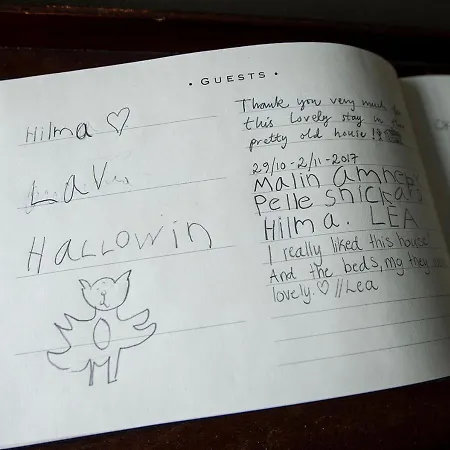 • GUESTS •
Hilma ♡
LaV
HALLOWin
Thank you very much
this lovely stay in
pretty old house !
29/10 - 2/11 - 2017
Malin
Pelle
Hilma. LEA
I really liked this house!
And the beds, mg they
lovely. ♡ //Lea